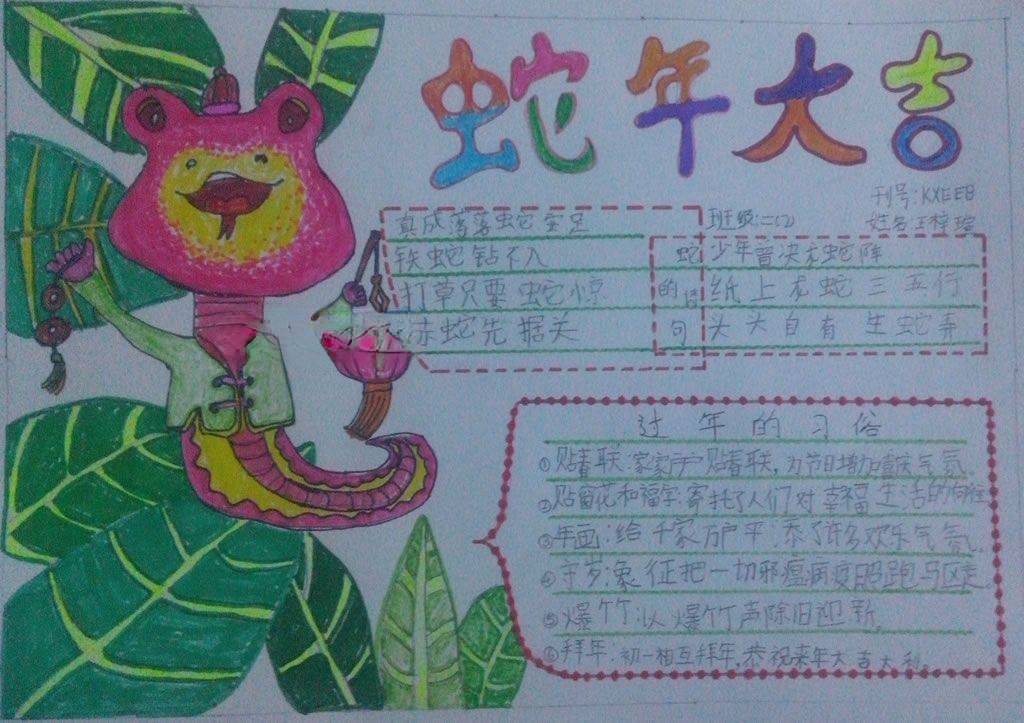 蛇年大吉
刊号:KXEEB
班级:二(2)
姓名:王梓
真成落落蛇安足
铁蛇钻不入
打草只要蛇惊
赤蛇先据关
蛇的诗句
少年曾决龙蛇阵
纸上龙蛇三五行
头头自有生蛇弄
过年的习俗
①贴春联:家家户户贴春联,为节日增加喜庆气氛
②贴窗花和福字:寄托了人们对幸福生活的向往
③年画:给千家万户平添了许多欢乐气氛。
④守岁:象征把一切邪瘟病疫照跑驱走
⑤爆竹:以爆竹声除旧迎新。
⑥拜年:初一相互拜年,恭祝来年大吉大利。